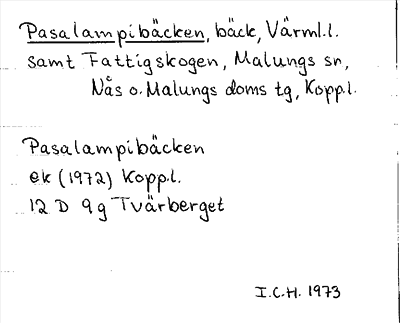 Pasalampibäcken, bäck, Värml.l.
samt Fattigskogen, Malungs sn,
Nås o. Malungs doms tg, Kopp.l.
Pasalampibäcken
ek (1972) Kopp.l.
12 D 9g Tvärberget
I.C.H. 1973